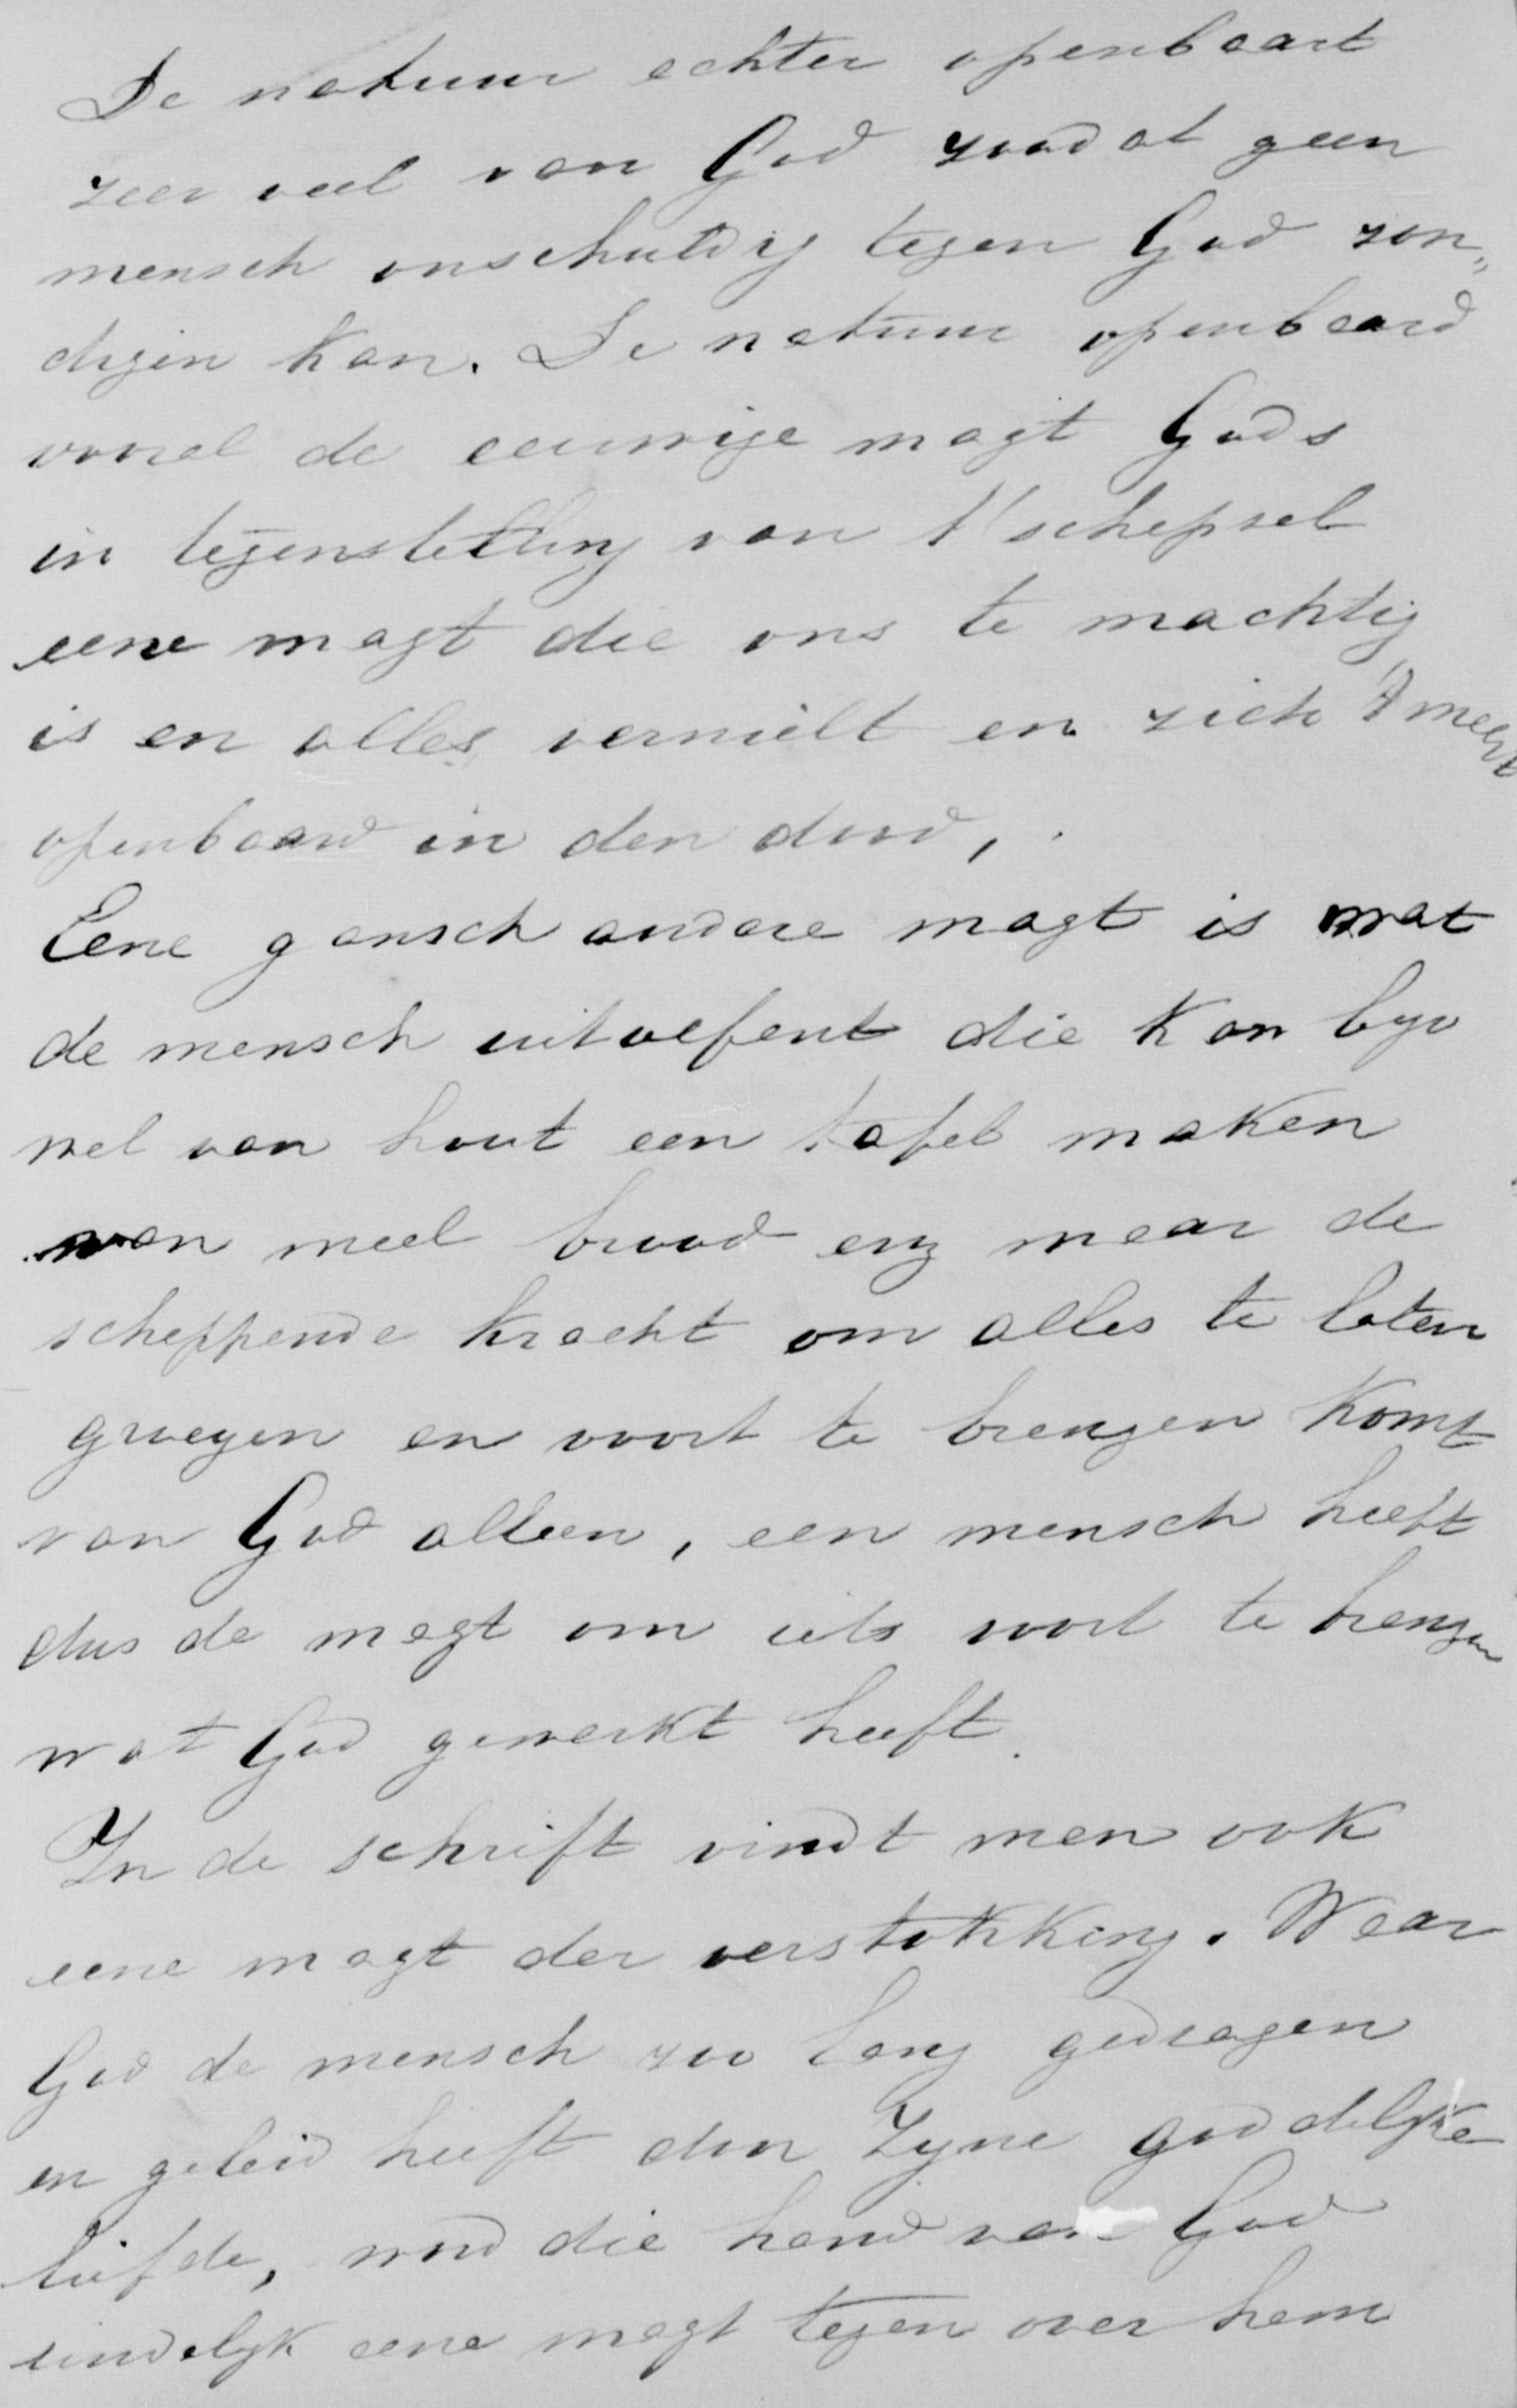 De natuur echter openbaart
zeer veel van God zoodat geen
mensch onschuldig tegen God zon„
digen kan. De natuur openbaard
vooral de eeuwige magt Gods
in tegenstelling van t'schepsel
eene magt die ons te machtig
is en alles vernielt en zich 't meest
openbaard in den dood,.
Eene gansch andere magt is wat
de mensch uitoefent die kan byv
wel van hout een tafel maken
van meel brood enz maar de
scheppende kracht om alles te laten
groeyen en voort te brengen komt
van God alleen, een mensch heeft
dus de magt om iets voort te brengen
wat God gewerkt heeft.
In de schrift vindt men ook
eene magt der verstokking. Waar
God de mensch zoo lang gedragen
en geleid heeft door Zyne goddelyke
liefde, word die hand van God
eindelyk eene magt tegen over hem